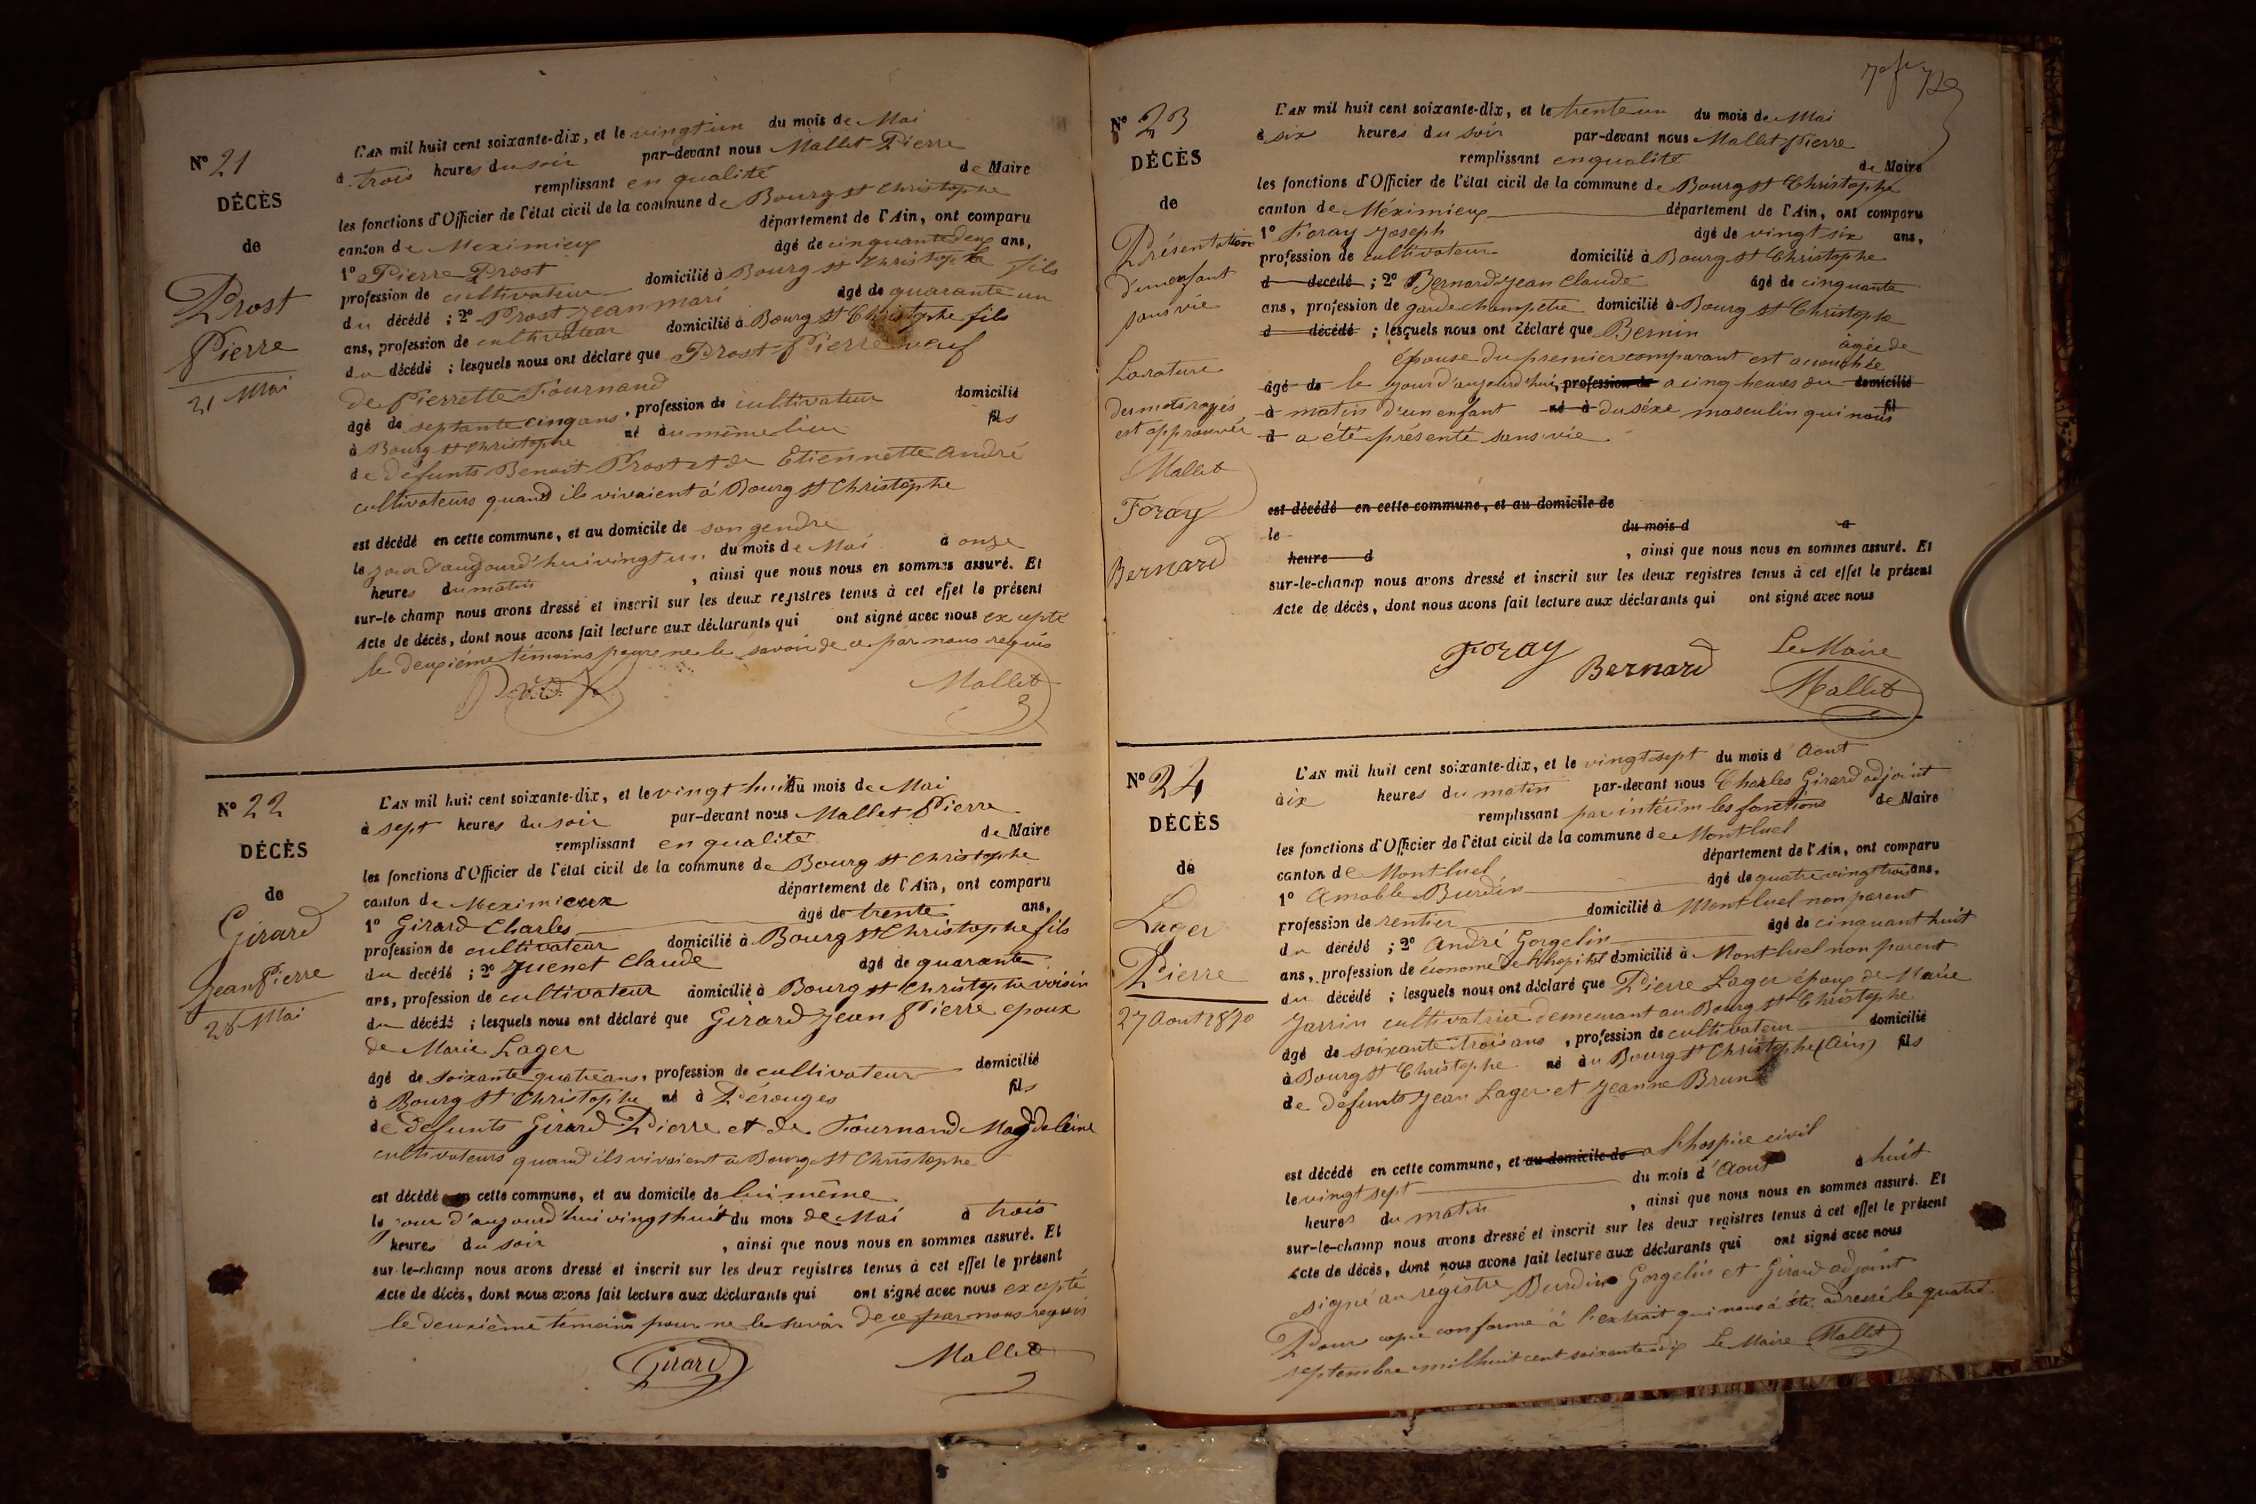 No 21
DÉCÈS
de
Prost
Pierre
21 Mai
L'AN mil huit cent soixante-dix, et le vingt un du mois de Mai
à trois heures du soir par-devant nous Mallet Pierre
remplissant en qualité de Maire
les fonctions d'Officier de l'état civil de la commune de Bourg St Christophe
canton de Meximieux département de l'Ain, ont comparu
1o Pierre Prost âgé de cinquante deux ans,
profession de cultivateur domicilié à Bourg St Christophe fils
du décédé ; 2o Prost Jean mari âgé de quarante un
ans, profession de cultivateur domicilié à Bourg St Christophe fils
du décédé ; lesquels nous ont déclaré que Prost Pierre veuf
de Pierrette Fournand
âgé de septante cinq ans, profession de cultivateur domicilié
à Bourg St Christophe né au même lieu fils
de defunts Benoit Prost et de Etiennette André
cultivateurs quand ils vivaient à Bourg St Christophe
est décédé en cette commune, et au domicile de son gendre
le jour d'aujourd'hui vingt un du mois de Mai à onze
heures du matin , ainsi que nous nous en sommes assuré. Et
sur-le-champ nous avons dressé et inscrit sur les deux registres tenus à cet effet le présent
Acte de décès, dont nous avons fait lecture aux déclarants qui ont signé avec nous excepté
le deuxiéme témoins pour ne le savoir de ce par nous requis
Mallet
No 22
DÉCÈS
de
Girard
Jean Pierre
28 Mai
L'AN mil huit cent soixante-dix, et le vingt huit du mois de Mai
à sept heures du soir par-devant nous Mallet Pierre
remplissant en qualité de Maire
les fonctions d'Officier de l'état civil de la commune de Bourg St Christophe
canton de Meximieux département de l'Ain, ont comparu
1o Girard Charles âgé de trente ans,
profession de cultivateur domicilié à Bourg St Christophe fils
du décédé ; 2o Juenet Claude âgé de quarante
ans, profession de cultivateur domicilié à Bourg St Christophe voisin
du décédé ; lesquels nous ont déclaré que Girard Jean Pierre epoux
de Marie Lager
âgé de soixante quatre ans, profession de cultivateur domicilié
à Bourg St Christophe né à Pérouges fils
de defunts Girard Pierre et de Fournand Magdeleine
cultivateurs quand ils vivaient à Bourg St Christophe
est décédé en cette commune, et au domicile de lui même
le jour d'aujourd'hui vingt huit du mois de Mai à trois
heures du soir , ainsi que nous nous en sommes assuré. Et
sur-le-champ nous avons dressé et inscrit sur les deux registres tenus à cet effet le présent
Acte de décès, dont nous avons fait lecture aux déclarants qui ont signé avec nous excepté
le deuxième témoins pour ne le savoir de ce par nous requis
Girard Mallet
No 23
DÉCÈS
de
Présentation
d'un enfant
sans vie
La rature
des mots rayés
est approuvée
Mallet
Foray
Bernard
L'AN mil huit cent soixante-dix, et le trente un du mois de Mai
à six heures du soir par-devant nous Mallet Pierre
remplissant en qualité de Maire
les fonctions d'Officier de l'état civil de la commune de Bourg St Christophe
canton de Méximieux département de l'Ain, ont comparu
1o Foray Joseph âgé de vingt six ans,
profession de cultivateur domicilié à Bourg St Christophe
d décédé ; 2o Bernard Jean Claude âgé de cinquante
ans, profession de garde champêtre domicilié à Bourg St Christophe
d décédé ; lesquels nous ont déclaré que Bernin
agée de
épouse du premier comparant est acouchée
âgé de le jour d'aujourd'hui, profession de a cinq heures du domicilié
à matin d'un enfant né à du séxe masculin qui nous fil
d a été présenté sans vie
est décédé en cette commune, et au domicile de
le du mois d à
heure d , ainsi que nous nous en sommes assuré. Et
sur-le-champ nous avons dressé et inscrit sur les deux registres tenus à cet effet le présent
Acte de décès, dont nous avons fait lecture aux déclarants qui ont signé avec nous
Foray Bernard Le Maire
Mallet
No 24
DÉCÈS
de
Lager
Pierre
27 Aout 1870
L'AN mil huit cent soixante-dix, et le vingt sept du mois d'Aout
à dix heures du matin par-devant nous Charles Girard adjoint
remplissant par intérim les fonctions de Maire
les fonctions d'Officier de l'état civil de la commune de Montluel
canton de Montluel département de l'Ain, ont comparu
1o Amable Burdin âgé de quatre vingt trois ans,
profession de rentier domicilié à Montluel non parent
du décédé ; 2o André Gorgelin âgé de cinquant huit
ans, profession de économe de l'hopital domicilié à Montluel non parent
du décédé ; lesquels nous ont déclaré que Pierre Lager époux de Marie
Jarrin cultivatrice demeurant au Bourg St Christophe
âgé de soixante trois ans , profession de cultivateur domicilié
à Bourg St Christophe né au Bourg St Christophe (Ain) fils
de défunts Jean Lager et Jeanne Brun
est décédé en cette commune, et au domicile de a l'hospice civil
le vingt sept du mois d'Aout à huit
heures du matin , ainsi que nous nous en sommes assuré. Et
sur-le-champ nous avons dressé et inscrit sur les deux registres tenus à cet effet le présent
Acte de décès, dont nous avons fait lecture aux déclarants qui ont signé avec nous
signé au régistre Burdin Gorgelin et Girard adjoint
Pour copie conforme à l'extrait qui nous à été adressé le quatre
septembre mil huit cent soixante dix Le Maire Mallet